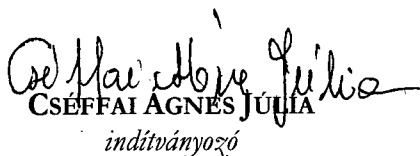 Cséffai Ágnes Júlia
CSÉFFAI ÁGNES JÚLIA
indítványozó